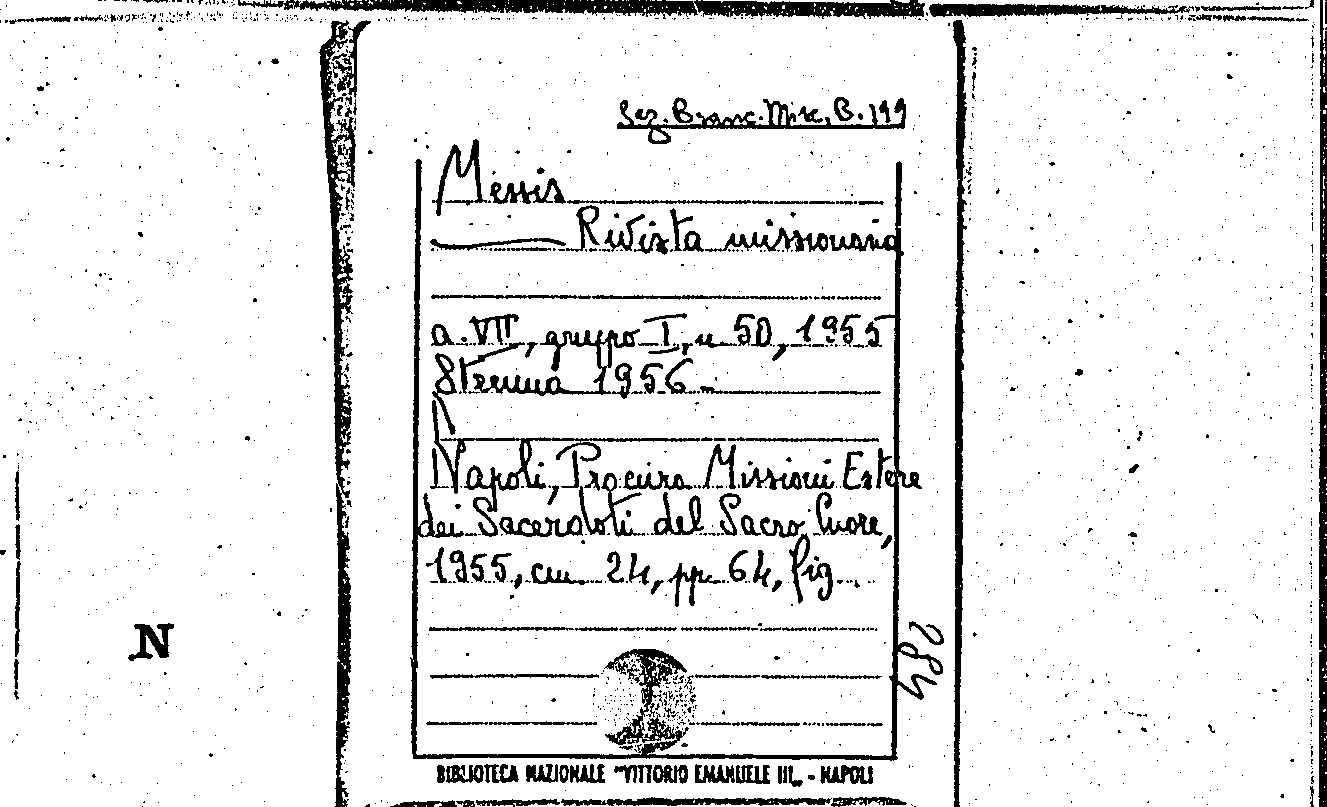 Sez. Branc. Misc. B. 199
Messis
Rivista missionaria
a. VII, gruppo I, n. 50, 1955
Strenna 1956 -
Napoli, Procura Missioni Estere
dei Sacerdoti del Sacro Cuore,
1955, cm. 24, pp. 64, fig..
284
N
BIBLIOTECA NAZIONALE "VITTORIO EMANUELE III„ - NAPOLI